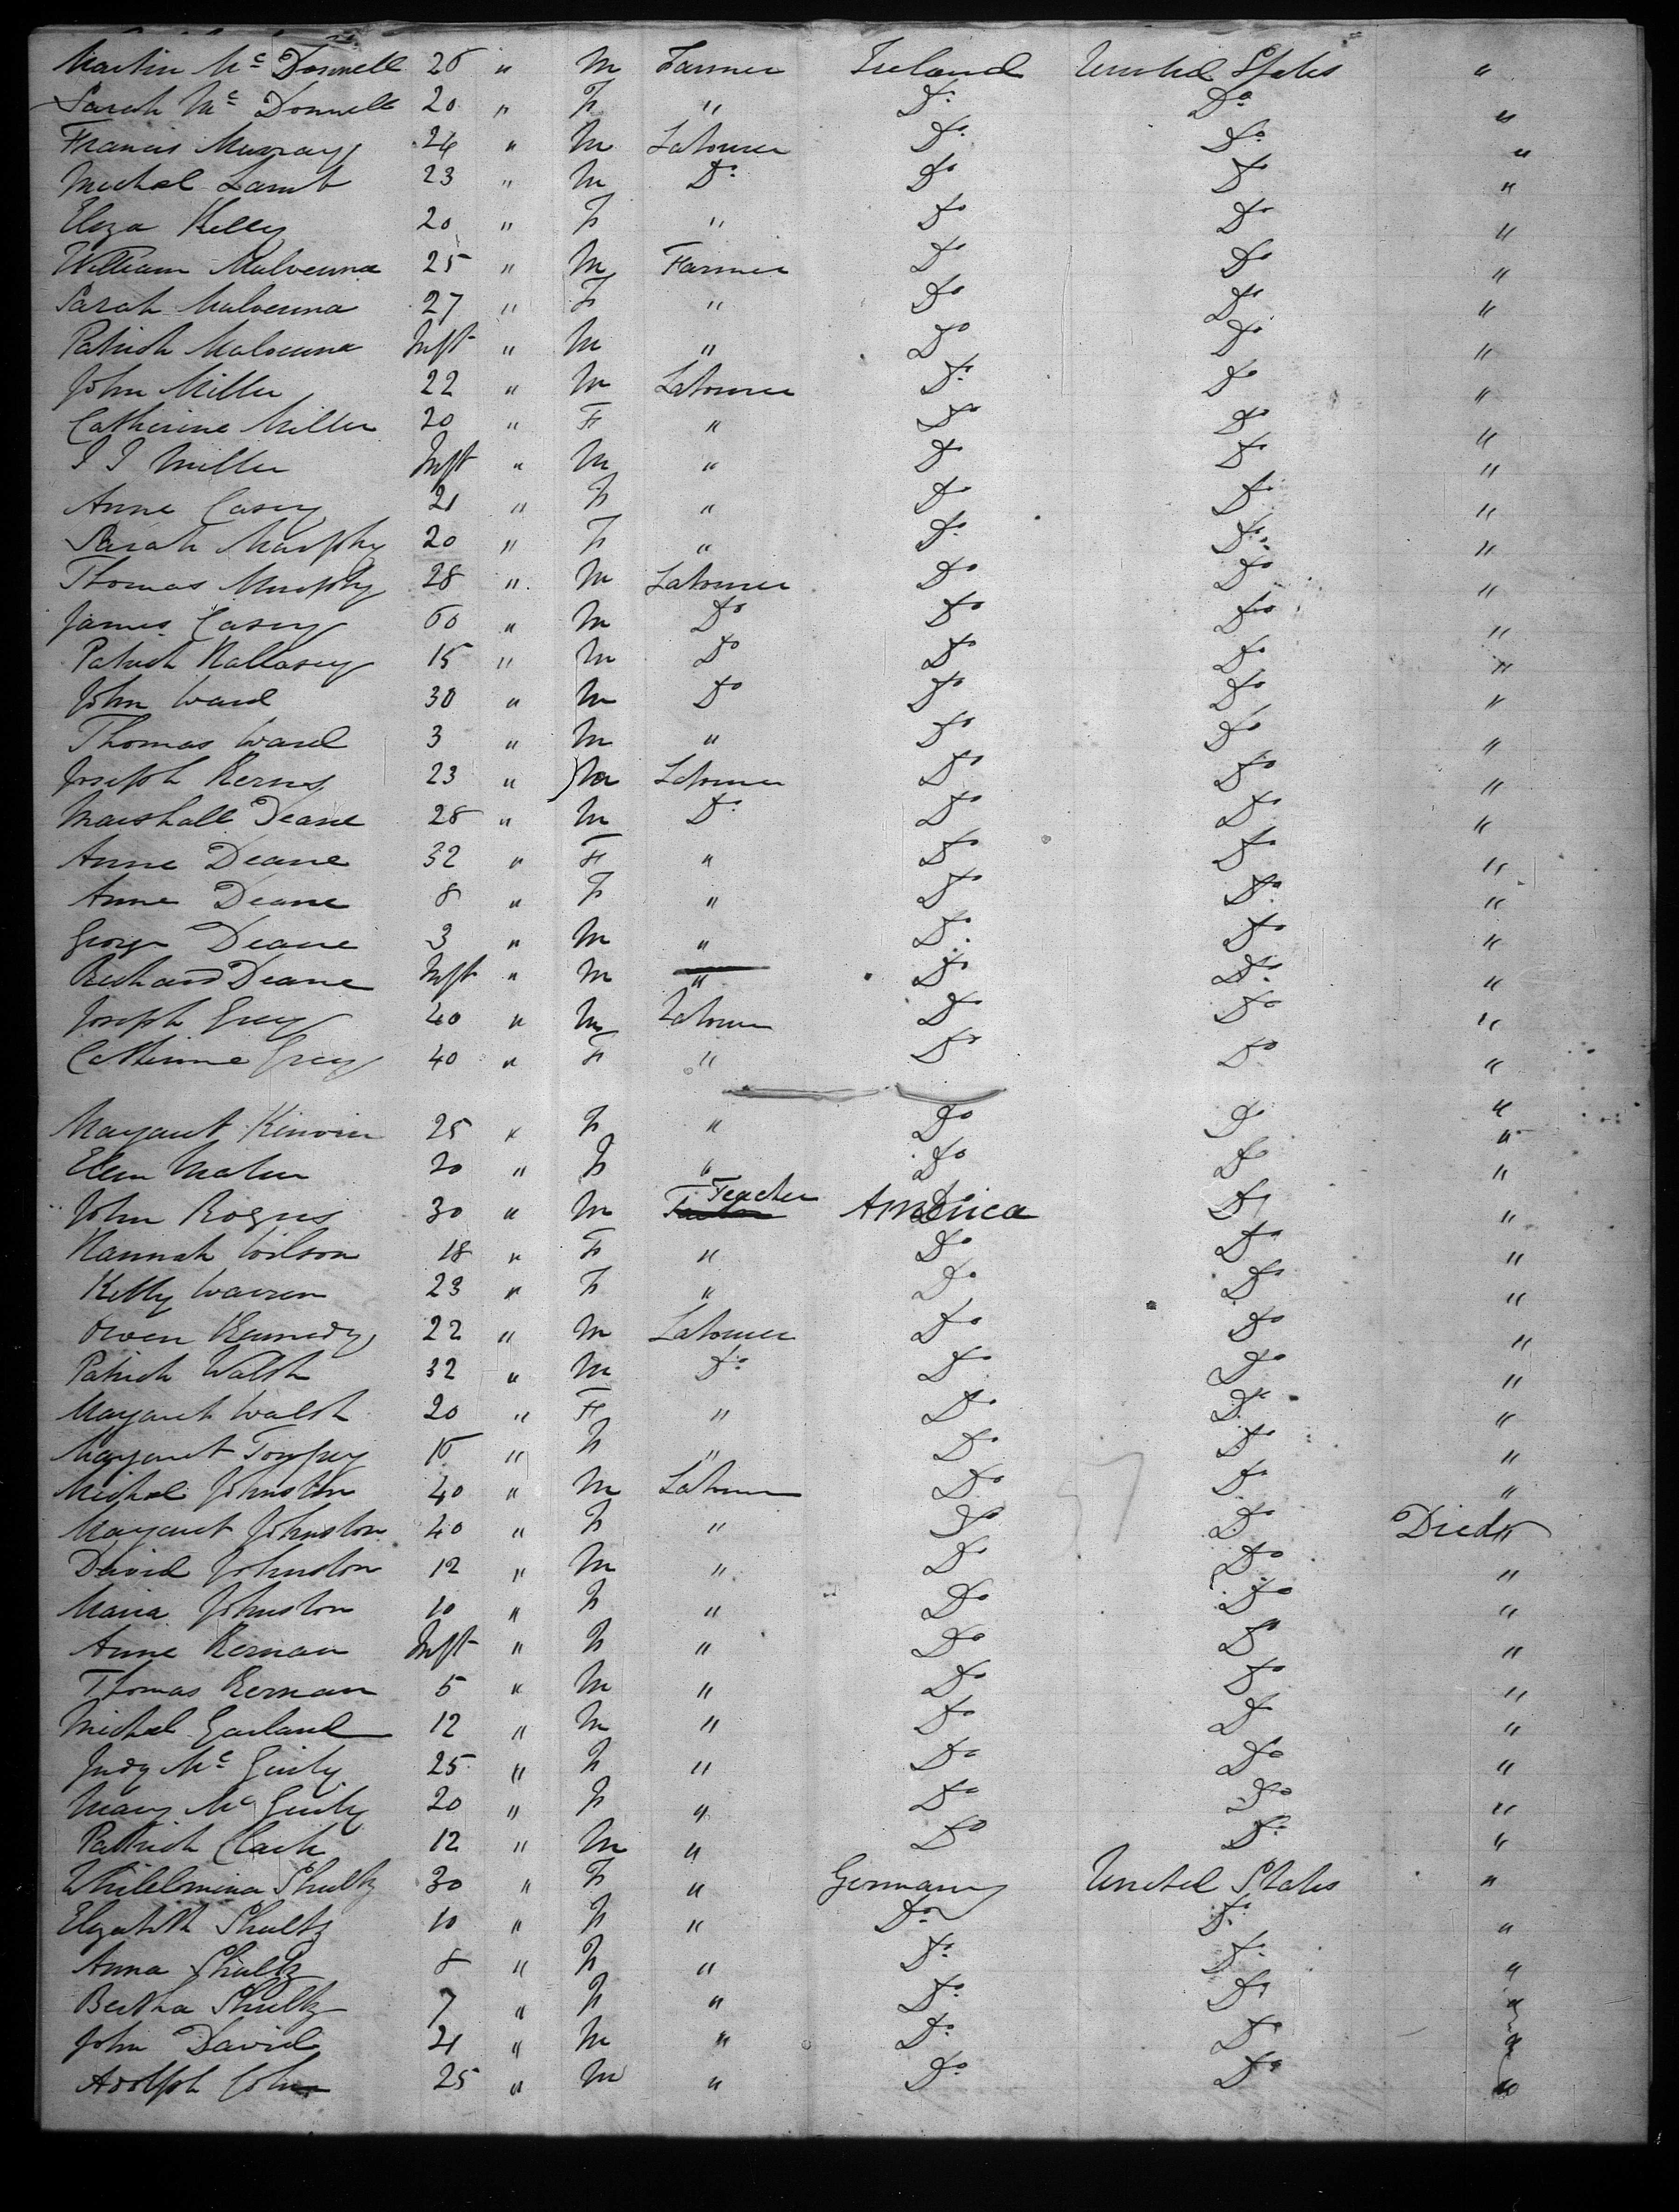 Martin Mc Donnell 26 " M Farmer Ireland United States "
Sarah Mc Donnell 20 " F " Do Do "
Francis Murray 24 " M Labourer Do Do "
Michal Lamb 23 " M Do Do Do "
Eliza Kelly 20 " F " Do Do "
William Mulvenna 25 " M Farmer Do Do "
Sarah Mulvenna 27 " F " Do Do "
Patrick Mulvenna Inft " M " Do Do "
John Miller 22 " M Labourer Do Do "
Catherine Miller 20 " F " Do Do "
J J Miller Inft " M " Do Do "
Anne Casey 21 " F " Do Do "
Sarah Murphy 20 " F " Do Do "
Thomas Murphy 28 " M Labourer Do Do "
James Casey 60 " M Do Do Do "
Patrick 15 " M Do Do Do "
John Ward 30 " M Do Do Do "
Thomas Ward 3 " M " Do Do "
Joseph Kerns 23 " M Labourer Do Do "
Marshall Deane 28 " M Do Do Do "
Anne Deane 32 " F " Do Do "
Anne Deane 8 " F " Do Do "
George Deane 3 " M " Do Do "
Richard Deane Inft " M " Do Do "
Joseph Grey 40 " M Labourer Do Do "
Catherine Grey 40 " F " Do Do "
Margaret Kirwin 25 " F " Do Do "
Ellen Maher 20 " F " Do Do "
John Rogers 30 " M Teacher America Do "
Hannah Wilson 18 " F " Do Do "
Kitty Warren 23 " F " Do Do "
Owen Kennedy 22 " M Labourer Do Do "
Patrick Walsh 32 " M Do Do Do "
Margaret Walsh 20 " F " Do Do "
Margaret 16 " F " Do Do "
Michal Johnston 40 " M Labourer Do Do "
Margaret Johnston 40 " F " Do Do Died "
David Johnston 12 " M " Do Do "
Maria Johnston 10 " F " Do Do "
Anne Kernan Inft " F " Do Do "
Thomas Kernan 5 " M " Do Do "
Michal Garland 12 " M " Do Do "
Judy Mc Ginty 25 " F " Do Do "
Mary Mc Ginty 20 " F " Do Do "
Patrick Clark 12 " M " Do Do "
Whilelmina Shultz 30 " F " Germany United States "
Elizabeth Shultz 10 " F " Do Do "
Anna Shultz 8 " F " Do Do "
Bertha Shultz 7 " F " Do Do "
John David 21 " M " Do Do "
Adolph Cohn 25 " M " Do Do "